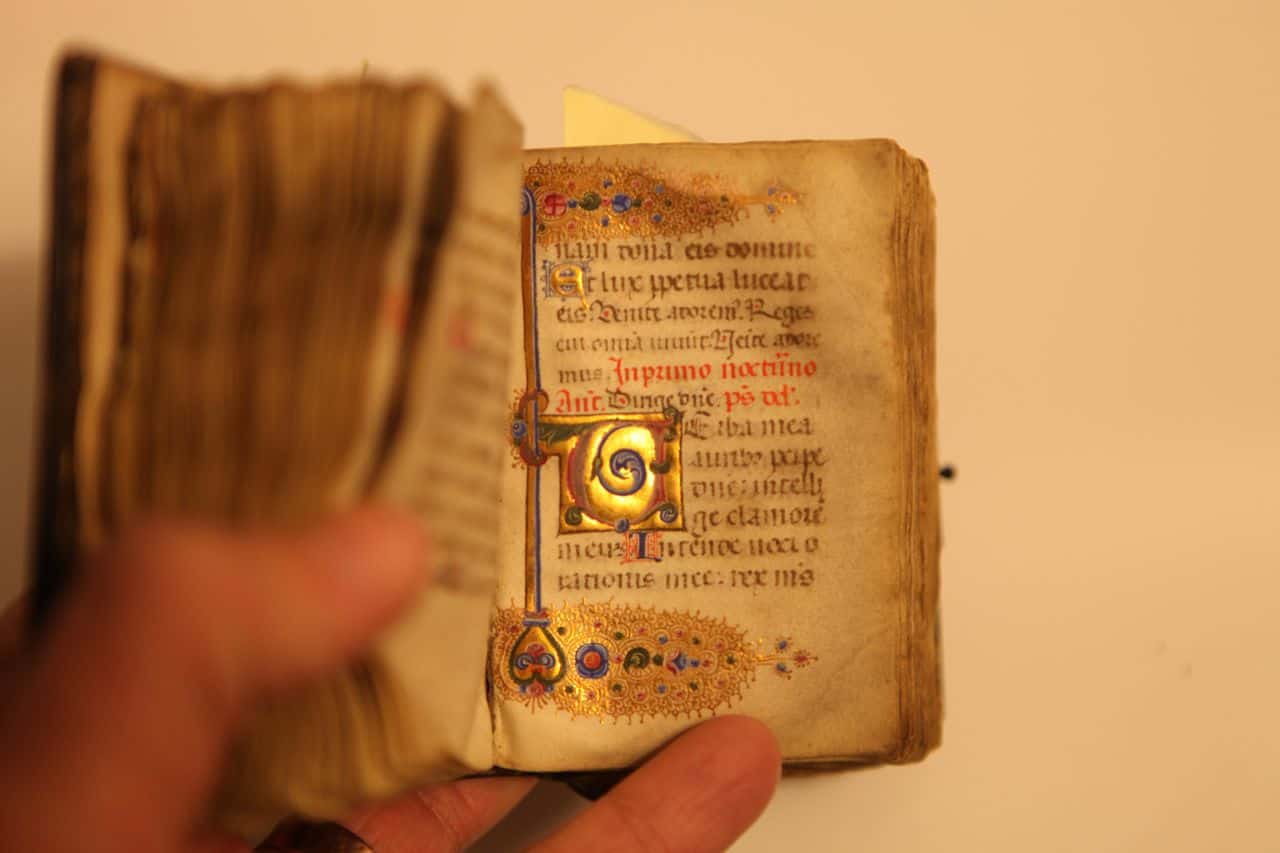 nam dona eis domine
Et lux ppetua luceat
eis. Venite adorem9. Reges
cui omia uiuūt. Ueite adore
mus. In primo nocturno
Añt. Dirige dñe. ps̄ dd̄.
VErba mea
auribȝ pcipe
dñe: intelli
ge clamorē
meuȝ Intende uoci o
rationis mee: rex mls